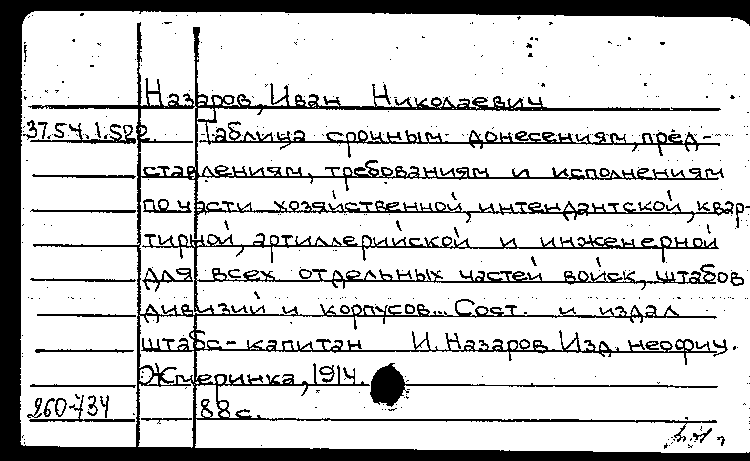 Назаров, Иван Николаевич
37.54.1.522. Таблица срочным: донесениям, пред-
ставлениям, требованиям и исполнениям
по части хозяйственной, интендантской, квар-
тирной, артиллерийской и инженерной
для всех отдельных частей войск, штабов
дивизий и корпусов... Сост. и издал
штабс-капитан И. Назаров. Изд. неофиц.
Жмеринка, 1914.
260-434 88 с.